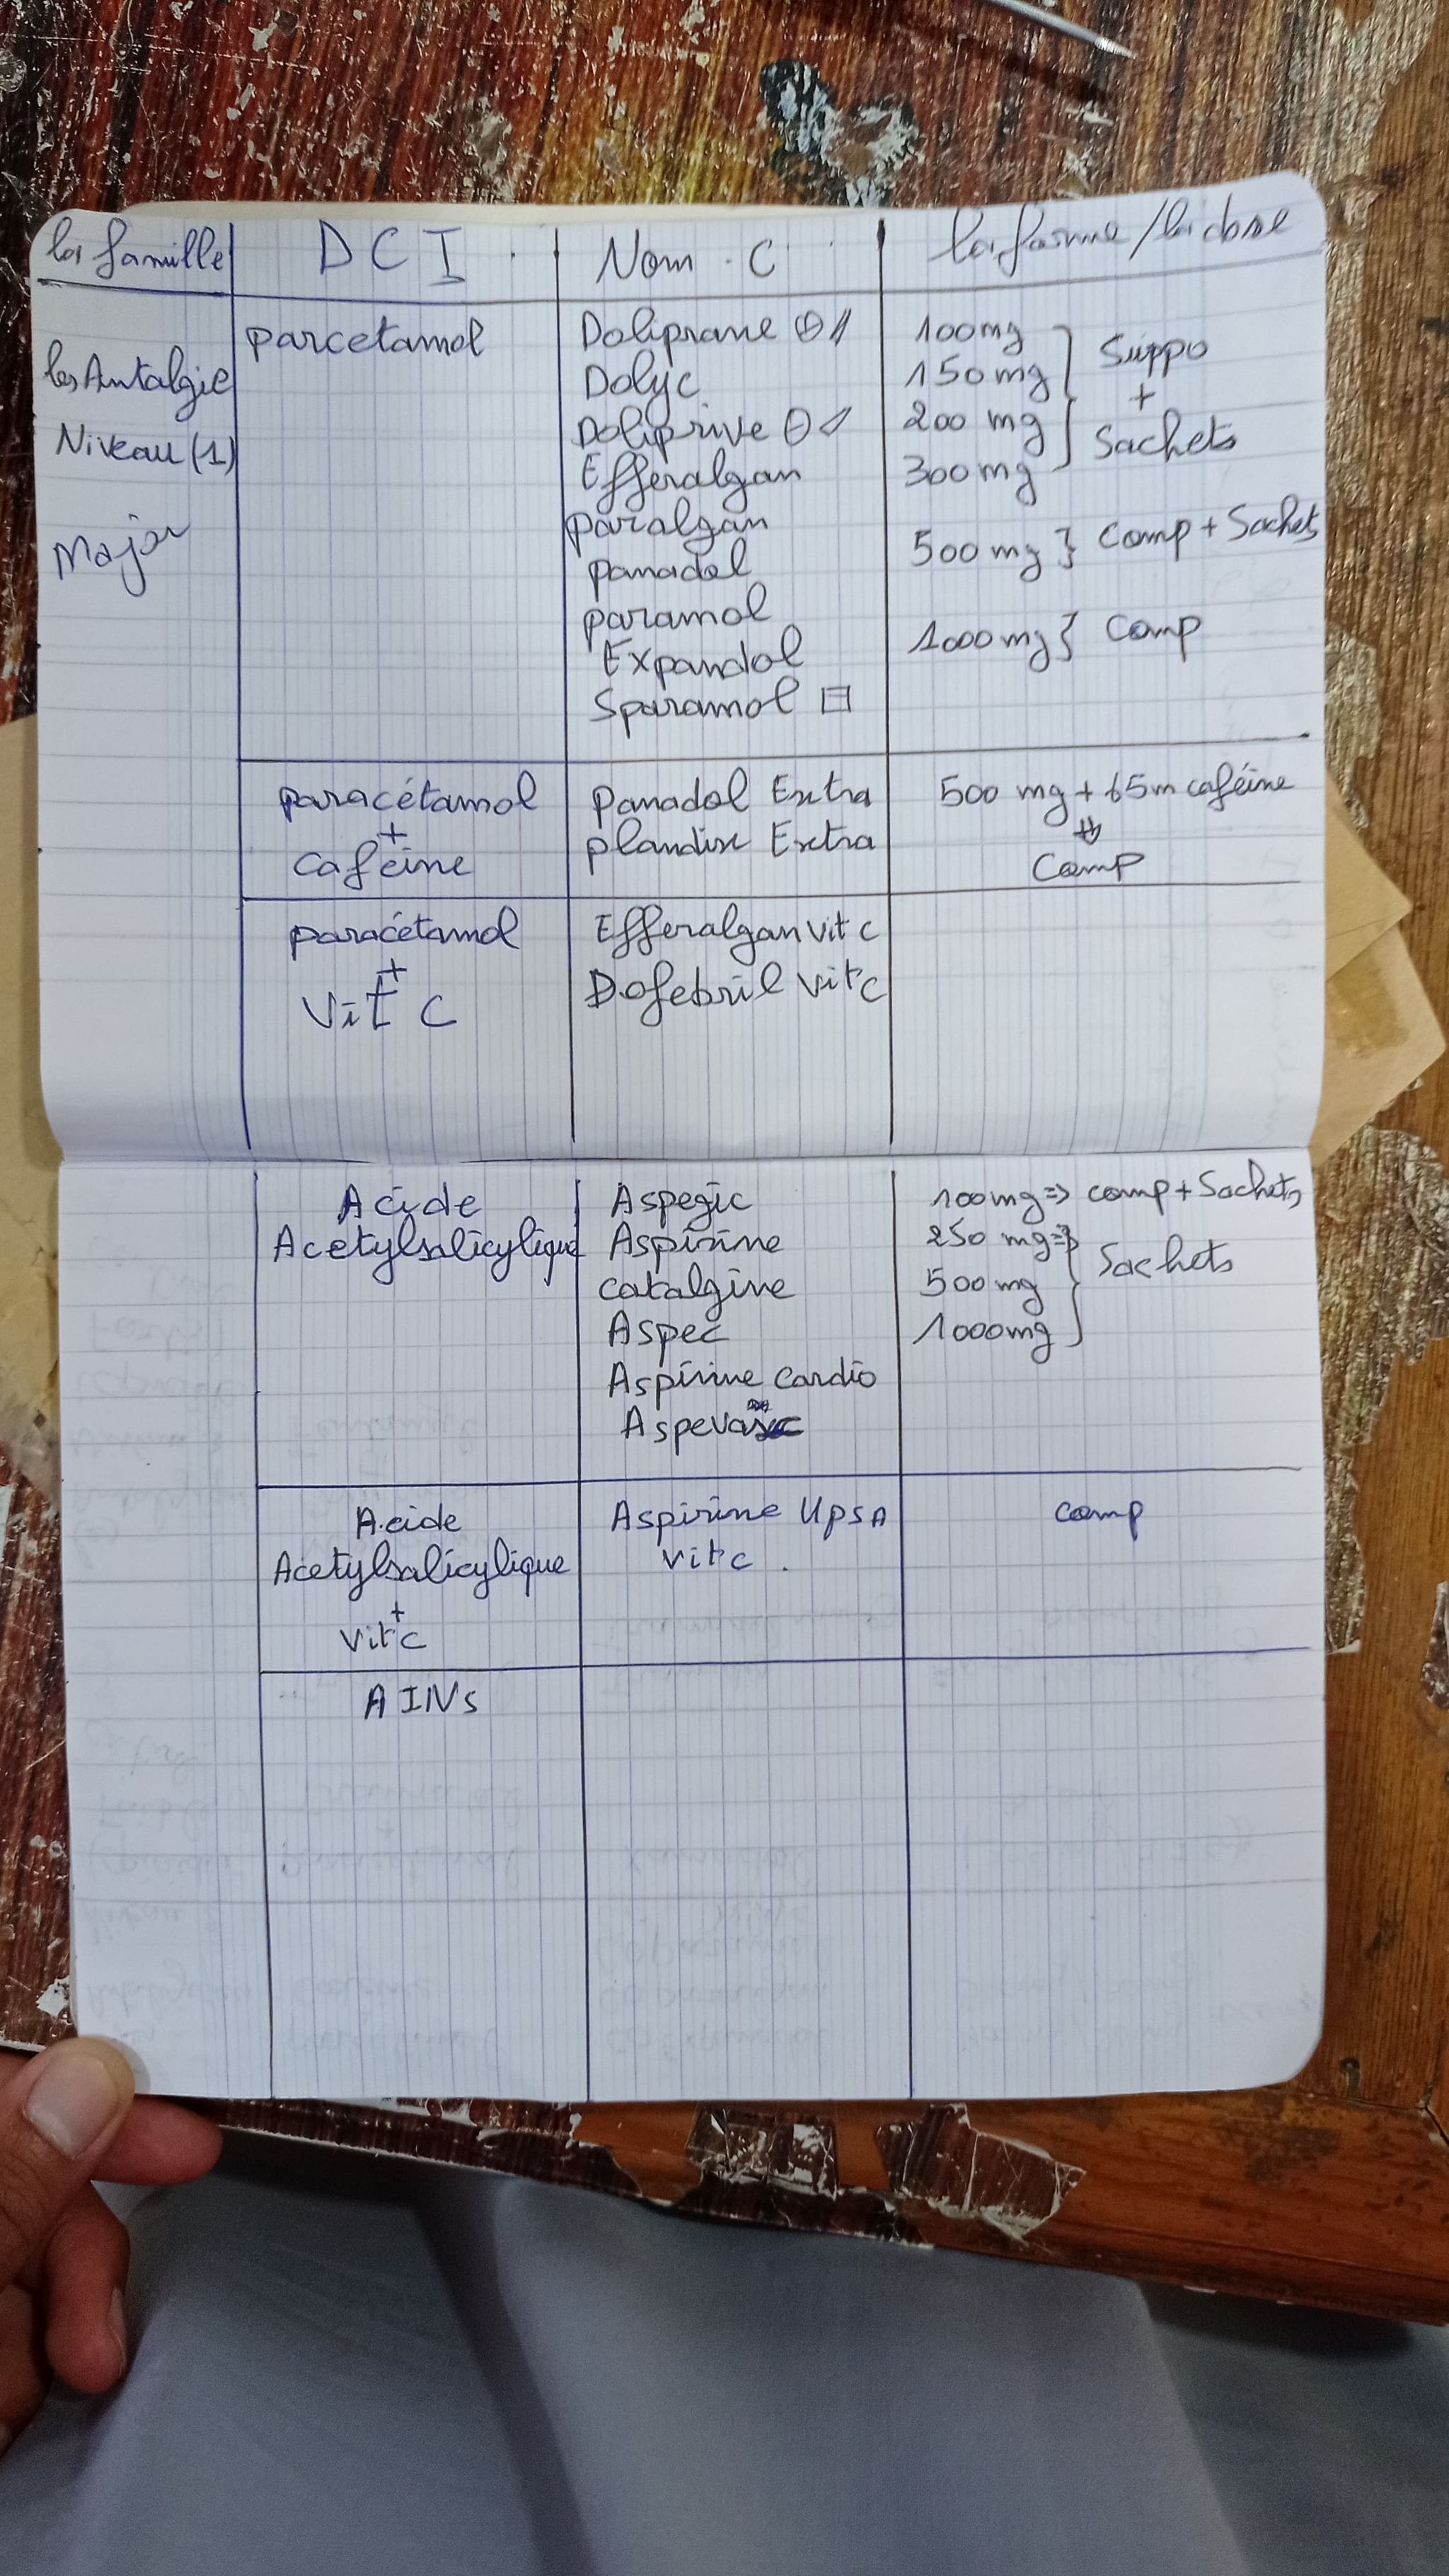 la famille DCI Nom C la forme/la dose
les Antalgie
Niveau (1)
Major
parcetamol
Doliprane
Dolyc
Doliprive
Efferalgan
paralgan
panadol
paramol
Expandol
Sparamol
100mg
150mg
200 mg
300mg
Suppo
+
Sachets
500mg } comp + Sachets
1000mg { comp
paracétamol
+
Caféine
Panadol Extra
plandix Extra
500 mg + 65m caféine
⇓
Comp
paracétamol
+
Vit C
Efferalgan vit C
Dofebril vit C
Acide
Acetylsalicylique
Aspegic
Aspirine
catalgine
Aspec
Aspirine cardio
100mg => comp + Sachets
250 mg =>
500 mg
1000mg
Sachets
Acide
Acetylsalicylique
+
vit c
Aspirine UPSA
vit c .
comp
AINs